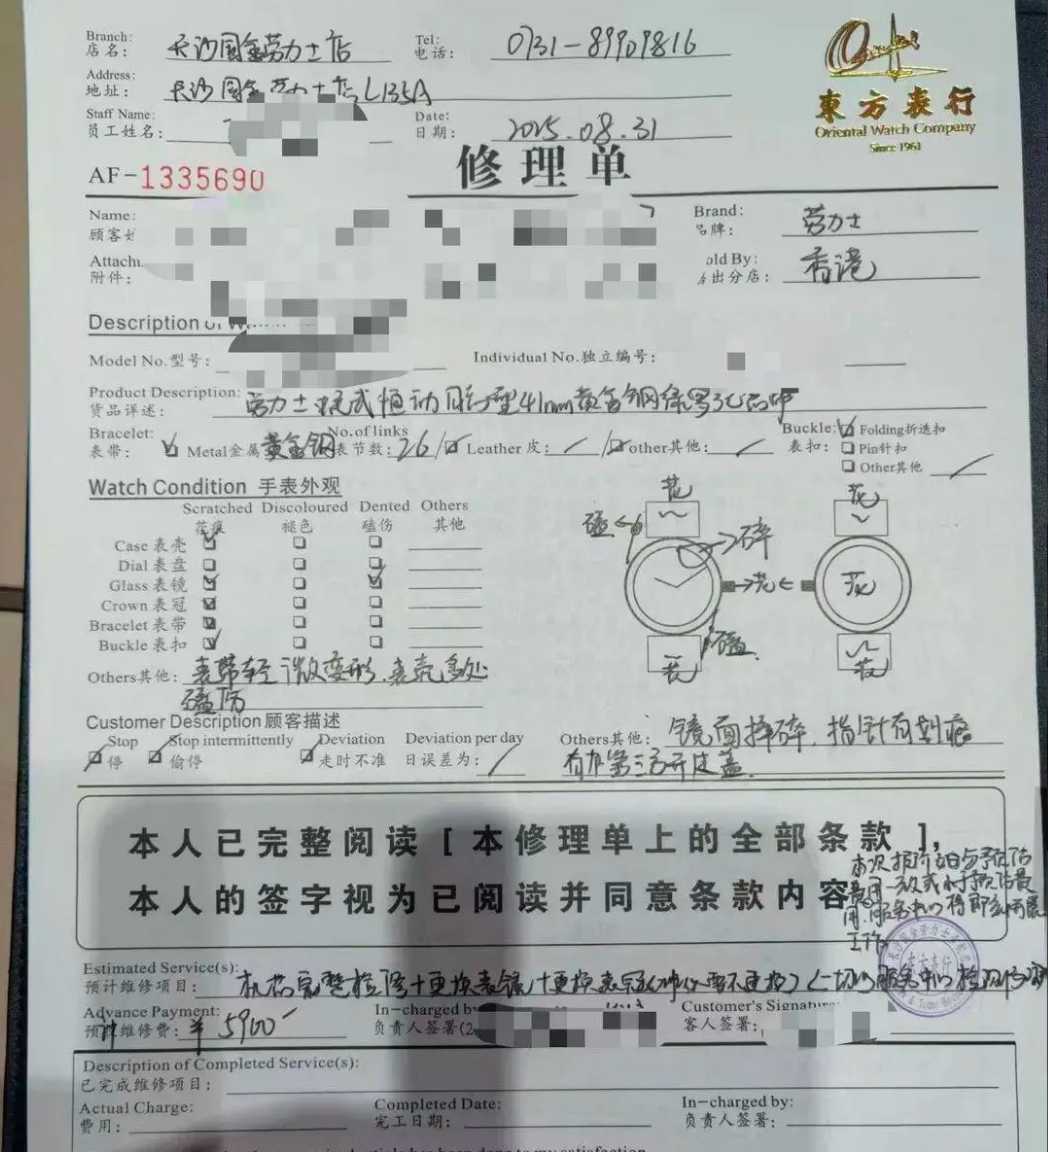 Branch:
店名: 长沙国金劳力士店
Tel:
电话: 0731-89909816
Address:
地址: 长沙国金劳力士店L135A
Staff Name:
员工姓名:
Date:
日期: 2025.08.31
東方表行
Oriental Watch Company
Since 1961
修理单
AF-1335690
Name:
顾客
Brand:
品牌: 劳力士
Attach
附件:
old By:
出分店: 香港
Description
Model No.型号:
Individual No.独立编号:
Product Description:
货品详述: 劳力士 恒动 41mm黄金钢
Bracelet:
表带:
Metal金属 黄金钢
No.of links
表节数: 26
Leather 皮:
other其他:
Buckle:
表扣:
Folding折迭扣
Pin针扣
Other其他
Watch Condition 手表外观
Scratched Discoloured Dented Others
花痕 褪色 磕伤 其他
Case 表壳
Dial 表盘
Glass 表镜
Crown 表冠
Bracelet 表带
Buckle 表扣
花
磕
碎
花
磕
花
花
花
花
Others其他: 表带轻微变形,表壳多处
磕伤
Customer Description 顾客描述
Stop
停
Stop intermittently
偷停
Deviation
走时不准
Deviation per day
日误差为:
Others其他: 镜面摔碎,指针有划痕
有加第三方开底盖
本人已完整阅读[本修理单上的全部条款],
本人的签字视为已阅读并同意条款内容
Estimated Service(s):
预计维修项目: 机芯完整检修+更换表镜+更换表冠
Advance Payment:
预计维修费: ¥5900
In-charged by
负责人签署
Customer's Signature
客人签署:
Description of Completed Service(s):
已完成维修项目:
Actual Charge:
费用:
Completed Date:
完工日期:
In-charged by:
负责人签署: